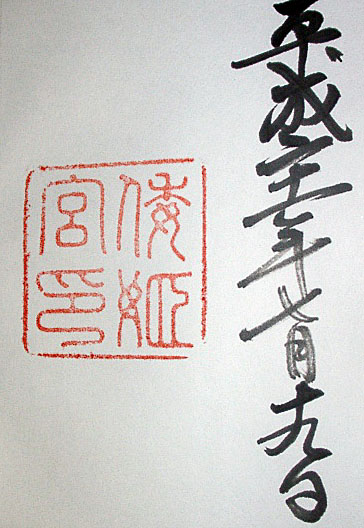 平成二十一年七月十九日
倭姫
宮印